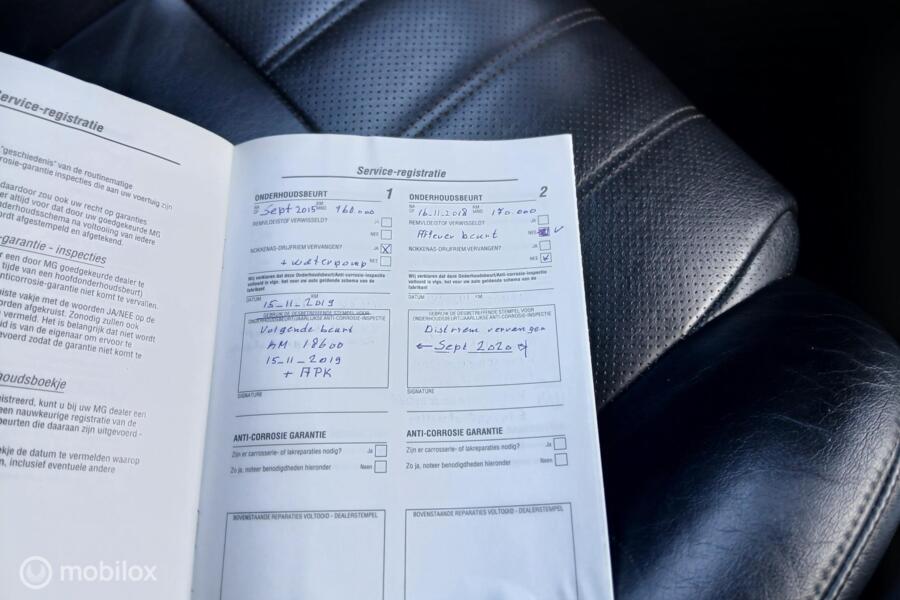 Service-registratie
"geschiedenis" van de routinematige
rosie-garantie inspecties die aan uw voertuig zijn
daardoor zou ook uw recht op garanties
er altijd voor dat door uw goedgekeurde MG
nderhoudsschema na voltooiing van iedere
ordt afgestempeld en afgetekend.
-garantie - inspecties
r een door MG goedgekeurde dealer te
tijde van een hoofdonderhoudsbeurt)
nticorrosie-garantie niet komt te vervallen.
uiste vakje met de woorden JA/NEE op de
orden afgekruist. Zonodig zullen ook
vermeld. Het is belangrijk dat niet wordt
uid is van de eigenaar om ervoor te
evoerd zodat de garantie niet komt te
houdsboekje
istreerd, kunt u bij uw MG dealer een
een nauwkeurige registratie van de
beurten die daaraan zijn uitgevoerd -
ekje de datum te vermelden waarop
n, inclusief eventuele andere
Service-registratie
ONDERHOUDSBEURT 1
NA OF Sept 2015 KM MND 160.000
REMVLOEISTOF VERWISSELD? JA
NEE
NOKKENAS-DRIJFRIEM VERVANGEN? JA X
+ waterpomp NEE
Wij verklaren dat deze Onderhoudsbeurt/Anti-corrosie-inspectie
voltooid is vlgs. het voor uw auto geldende schema van de
fabrikant
DATUM 15-11-2019 KM
GEBRUIK DE DESBETREFFENDE STEMPEL VOOR
ONDERHOUDSBEURT/JAARLIJKSE ANTI-CORROSIE-INSPECTIE
Volgende beurt
KM 18600
15-11-2019
+ APK
SIGNATURE
ANTI-CORROSIE GARANTIE
Zijn er carrosserie- of lakreparaties nodig? Ja
Zo ja, noteer benodigdheden hieronder Neen
BOVENSTAANDE REPARATIES VOLTOOID - DEALERSTEMPEL
ONDERHOUDSBEURT 2
NA OF 16-11-2018 KM MND 170.000
REMVLOEISTOF VERWISSELD? JA
Aflever beurt NEE
NOKKENAS-DRIJFRIEM VERVANGEN? JA
NEE
Wij verklaren dat deze Onderhoudsbeurt/Anti-corrosie-inspectie
voltooid is vlgs. het voor uw auto geldende schema van de
fabrikant
DATUM KM
GEBRUIK DE DESBETREFFENDE STEMPEL VOOR
ONDERHOUDSBEURT/JAARLIJKSE ANTI-CORROSIE-INSPECTIE
Distriem vervangen
← Sept 2020
SIGNATURE
ANTI-CORROSIE GARANTIE
Zijn er carrosserie- of lakreparaties nodig? Ja
Zo ja, noteer benodigdheden hieronder Neen
BOVENSTAANDE REPARATIES VOLTOOID - DEALERSTEMPEL
mobilox